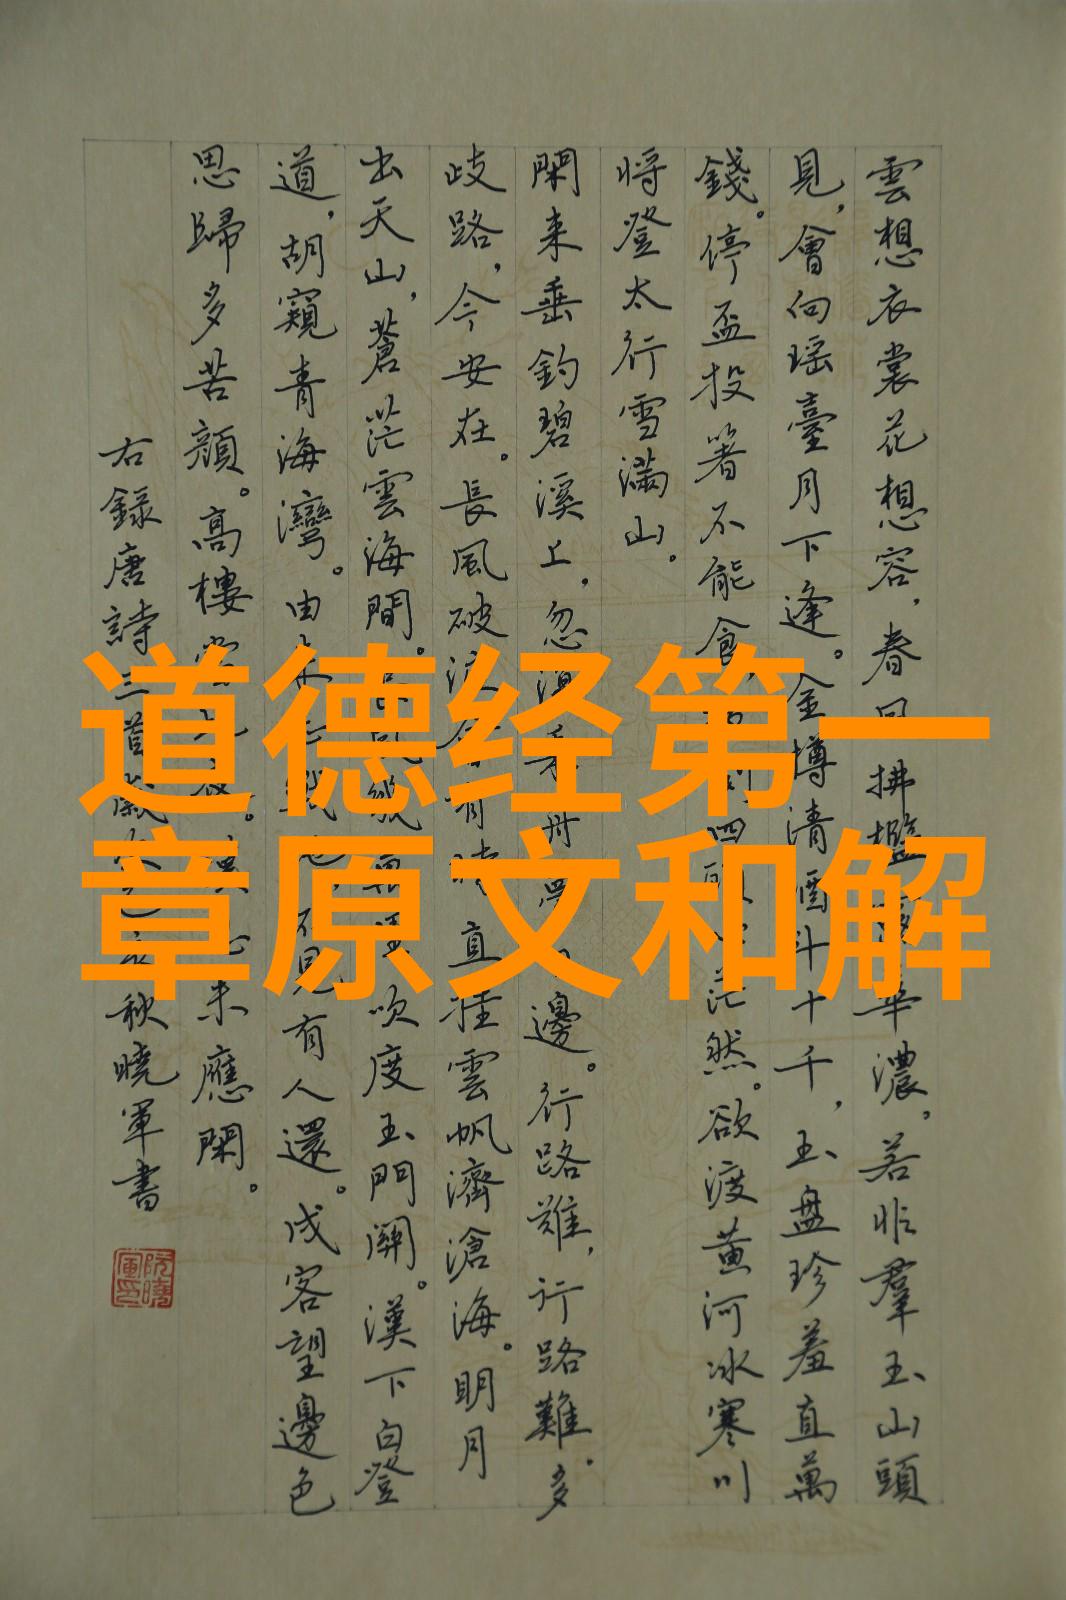 道德经第一
章原文和解
雲想衣裳花想容，春風拂檻露華濃。若非羣玉山頭
見，會向瑶臺月下逢。金樽清酒斗十千，玉盤珍羞直萬
錢。停盃投箸不能食，四 茫然。欲渡黄河冰寒川
将登太行雪滿山。
閑来垂釣碧溪上，忽 邊。行路難，行路難。多
歧路，今安在。長風破浪會有時直挂雲帆濟滄海。明月
出天山，蒼茫雲海間。 吹度玉門關。漢下白登
道，胡窺青海灣。由来 不見有人還。戍客望邊色
思歸多苦顔。高樓 未應閑。
右録唐詩三首 秋曉軍書
阮曉軍印